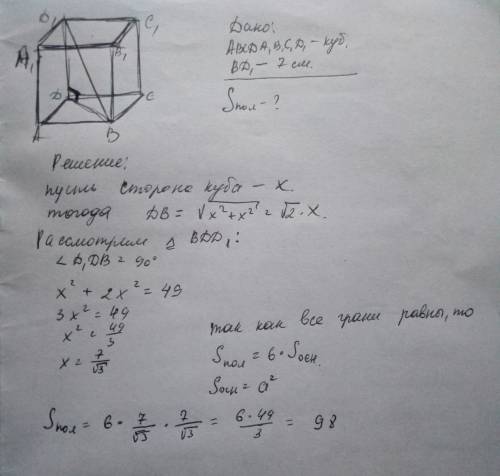 D₁ C₁
A₁ B₁
D C
A B
Дано:
ABCDA₁B₁C₁D₁ – куб.
BD₁ – 7 см.
Sпол – ?
Решение:
пусть сторона куба – x.
тогода DB = √x² + x² = √2 · x.
Рассмотрим △ BDD₁:
∠D₁DB = 90°
x² + 2x² = 49
3x² = 49
x² = 49/3
x = 7/√3
так как все грани равны, то
Sпол = 6 · Sосн.
Sосн = a²
Sпол = 6 · 7/√3 · 7/√3 = 6·49/3 = 98